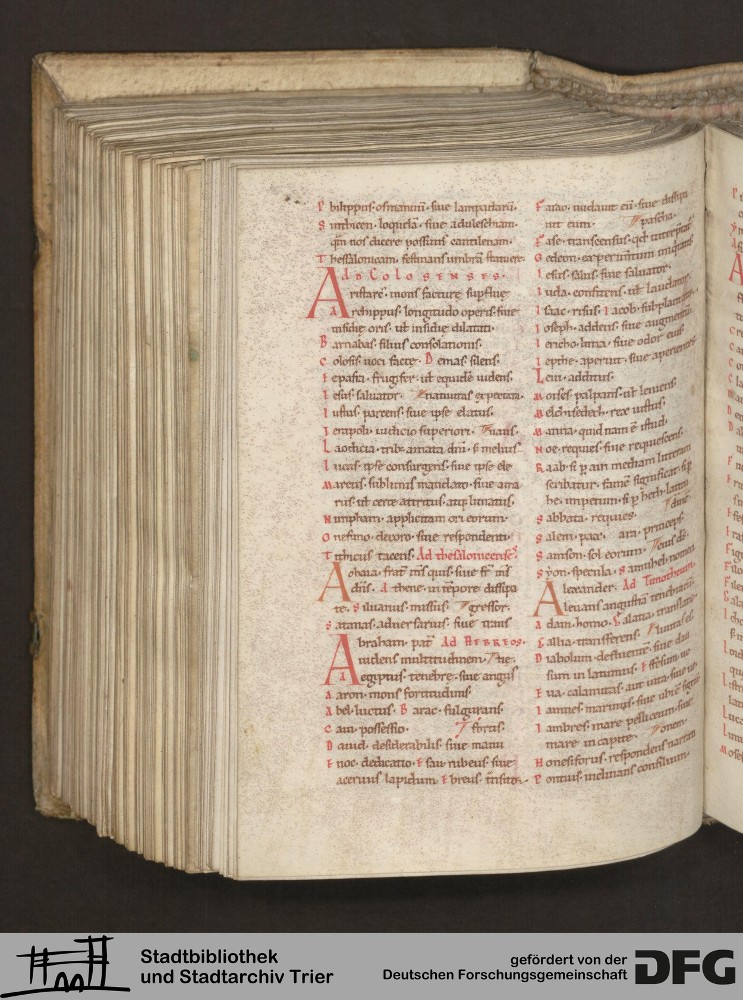 Philippus. os manuũ. siue lampadarũ.
Sinthicen. loquelã. siue adulescentiam.
qm̃ nos dicere possum⁹ cantilenam.
Thessalonicam. festinans umbrã statuere.
Ad Colosenses.
Aristarc⁹. mons facture supflue
Archippus. longitudo operis. siue
insidie oris. ut̃ insidie dilatati.
Barnabas. filius consolationis.
Colosis. uoci facte. Demas. silens.
Epafra. frugifer. ut̃ equidẽ uidens.
Iesus. saluator. natiuitas exspectata.
Iustus. parcens. siue ipse eleuatus.
Ierapoli. iudicio superiori. uans.
Laodicia. trib⁹ amata dñi. ł melius
Lucas. ipse consurgens. siue ipse ele
Marcus. sublimis mandato. siue ama
rus. ut̃ certe attritus. atq; limatus.
Nimpham. applicitam ori eorum.
Onesimo. decoro. siue respondenti.
Tithicus. tacens. Ad thesalonicenses.
Achaia. frat̃ m̃s quis. siue fr̃ m̃s
dñs. Athene. in tẽpore dissipa
te. Siluanus. missus. gressor.
Satanas. aduersarius. siue trans
Abraham. pat̃ Ad Hebreos.
uidens multitudinem. tie.
Aegiptus. tenebre. siue angus
Aaron. mons fortitudinis.
Abel. luctus. Barac. fulgurans.
Cain. possessio. fortis.
Dauid. desiderabilis. siue manu
Enoc. dedicatio. Esau. rubeus. siue
aceruus lapidum. Ebreus. t̃nsitor.
Farao. nudauit eũ. siue dissipa
uit eum. pascha.
Fase. transcensus. qđ interp̃tat̃
Gedeon. experimentum iniquitatis
Iesus. salus. siue saluator.
Iuda. confitens. ut̃ laudans.
Isaac. risus. Iacob. subplantator.
Ioseph. addens. siue augentũ.
Iericho. luna. siue odor eius.
Iepthe. aperuit. siue aperientes
Leui. additus.
Moises. palpans. ut̃ leniens.
Melchisedech. rex iustus.
Manna. quid nam ẽ istud.
Noe. requies. siue requiescens.
Raab. si p ain mediam litteram
scribatur. famẽ significat. si p
he. impetum. si p heth. latitu
Sabbata. requies. dinẽ
Salem. pax. ara. princeps.
Samson. sol eorum. eius dẽ.
Syon. specula. Samuhel. nomen
Alexander. Ad Timotheum.
leuans angustiã tenebrarũ.
Adam. homo. Galatia. translatio
Gallia. transferens. luntas eĩ.
Diabolum. defluentẽ. siue clau
sum in latumis. Effesum. uo
Eua. calamitas. aut uita. siue ue
Iamnes. marinus. siue ubi ẽ signum.
Iambres. mare pelliceum. siue
mare in capite. onem.
Honesiforus. respondens narrati
Pontius. inclinans consilium.
Stadtbibliothek
und Stadtarchiv Trier
gefördert von der
Deutschen Forschungsgemeinschaft
DFG